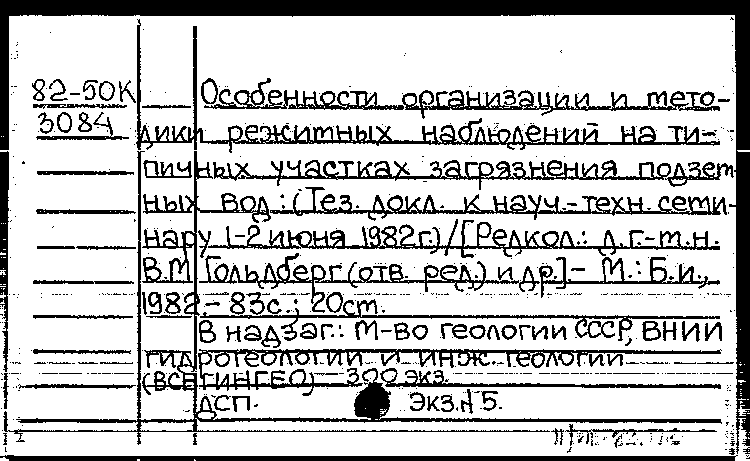 82-50К Особенности организации и мето-
3084 дики режимных наблюдений на ти-
пичных участках загрязнения подзем
ных вод: (Тез. докл. к науч.-техн. семи-
нару 1-2 июня 1982г.)/[Редкол.: д.г.-м.н.
В.М. Гольдберг (отв. ред.) и др.]- М.: Б.и.,
1982.- 83с.; 20см.
В надзаг.: М-во геологии СССР, ВНИИ
гидрогеологии и инж. геологии
(ВСЕГИНГЕО) - 300 экз.
ДСП. Экз.№5.